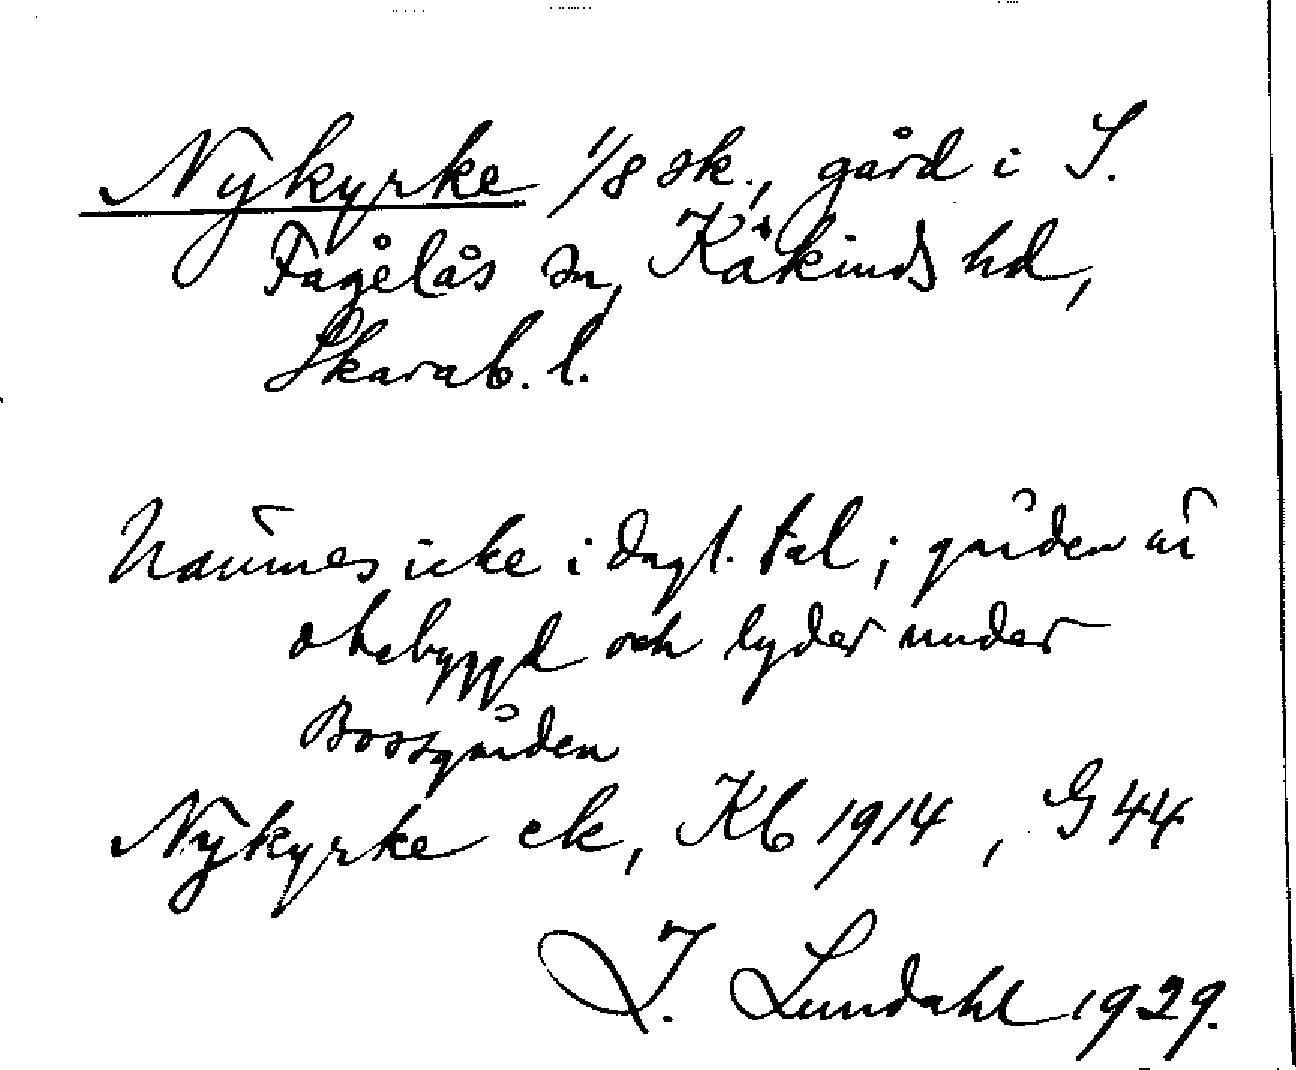 Nykyrke 1/8 sk., gård i S.
Fågelås sn, Kåkinds hd,
Skarab. l.
Nämnes icke i dagl. tal; gården är
obebyggd och lyder under
Bossgården
Nykyrke ck, Kb 1914, G 44
I. Lundahl 1929.